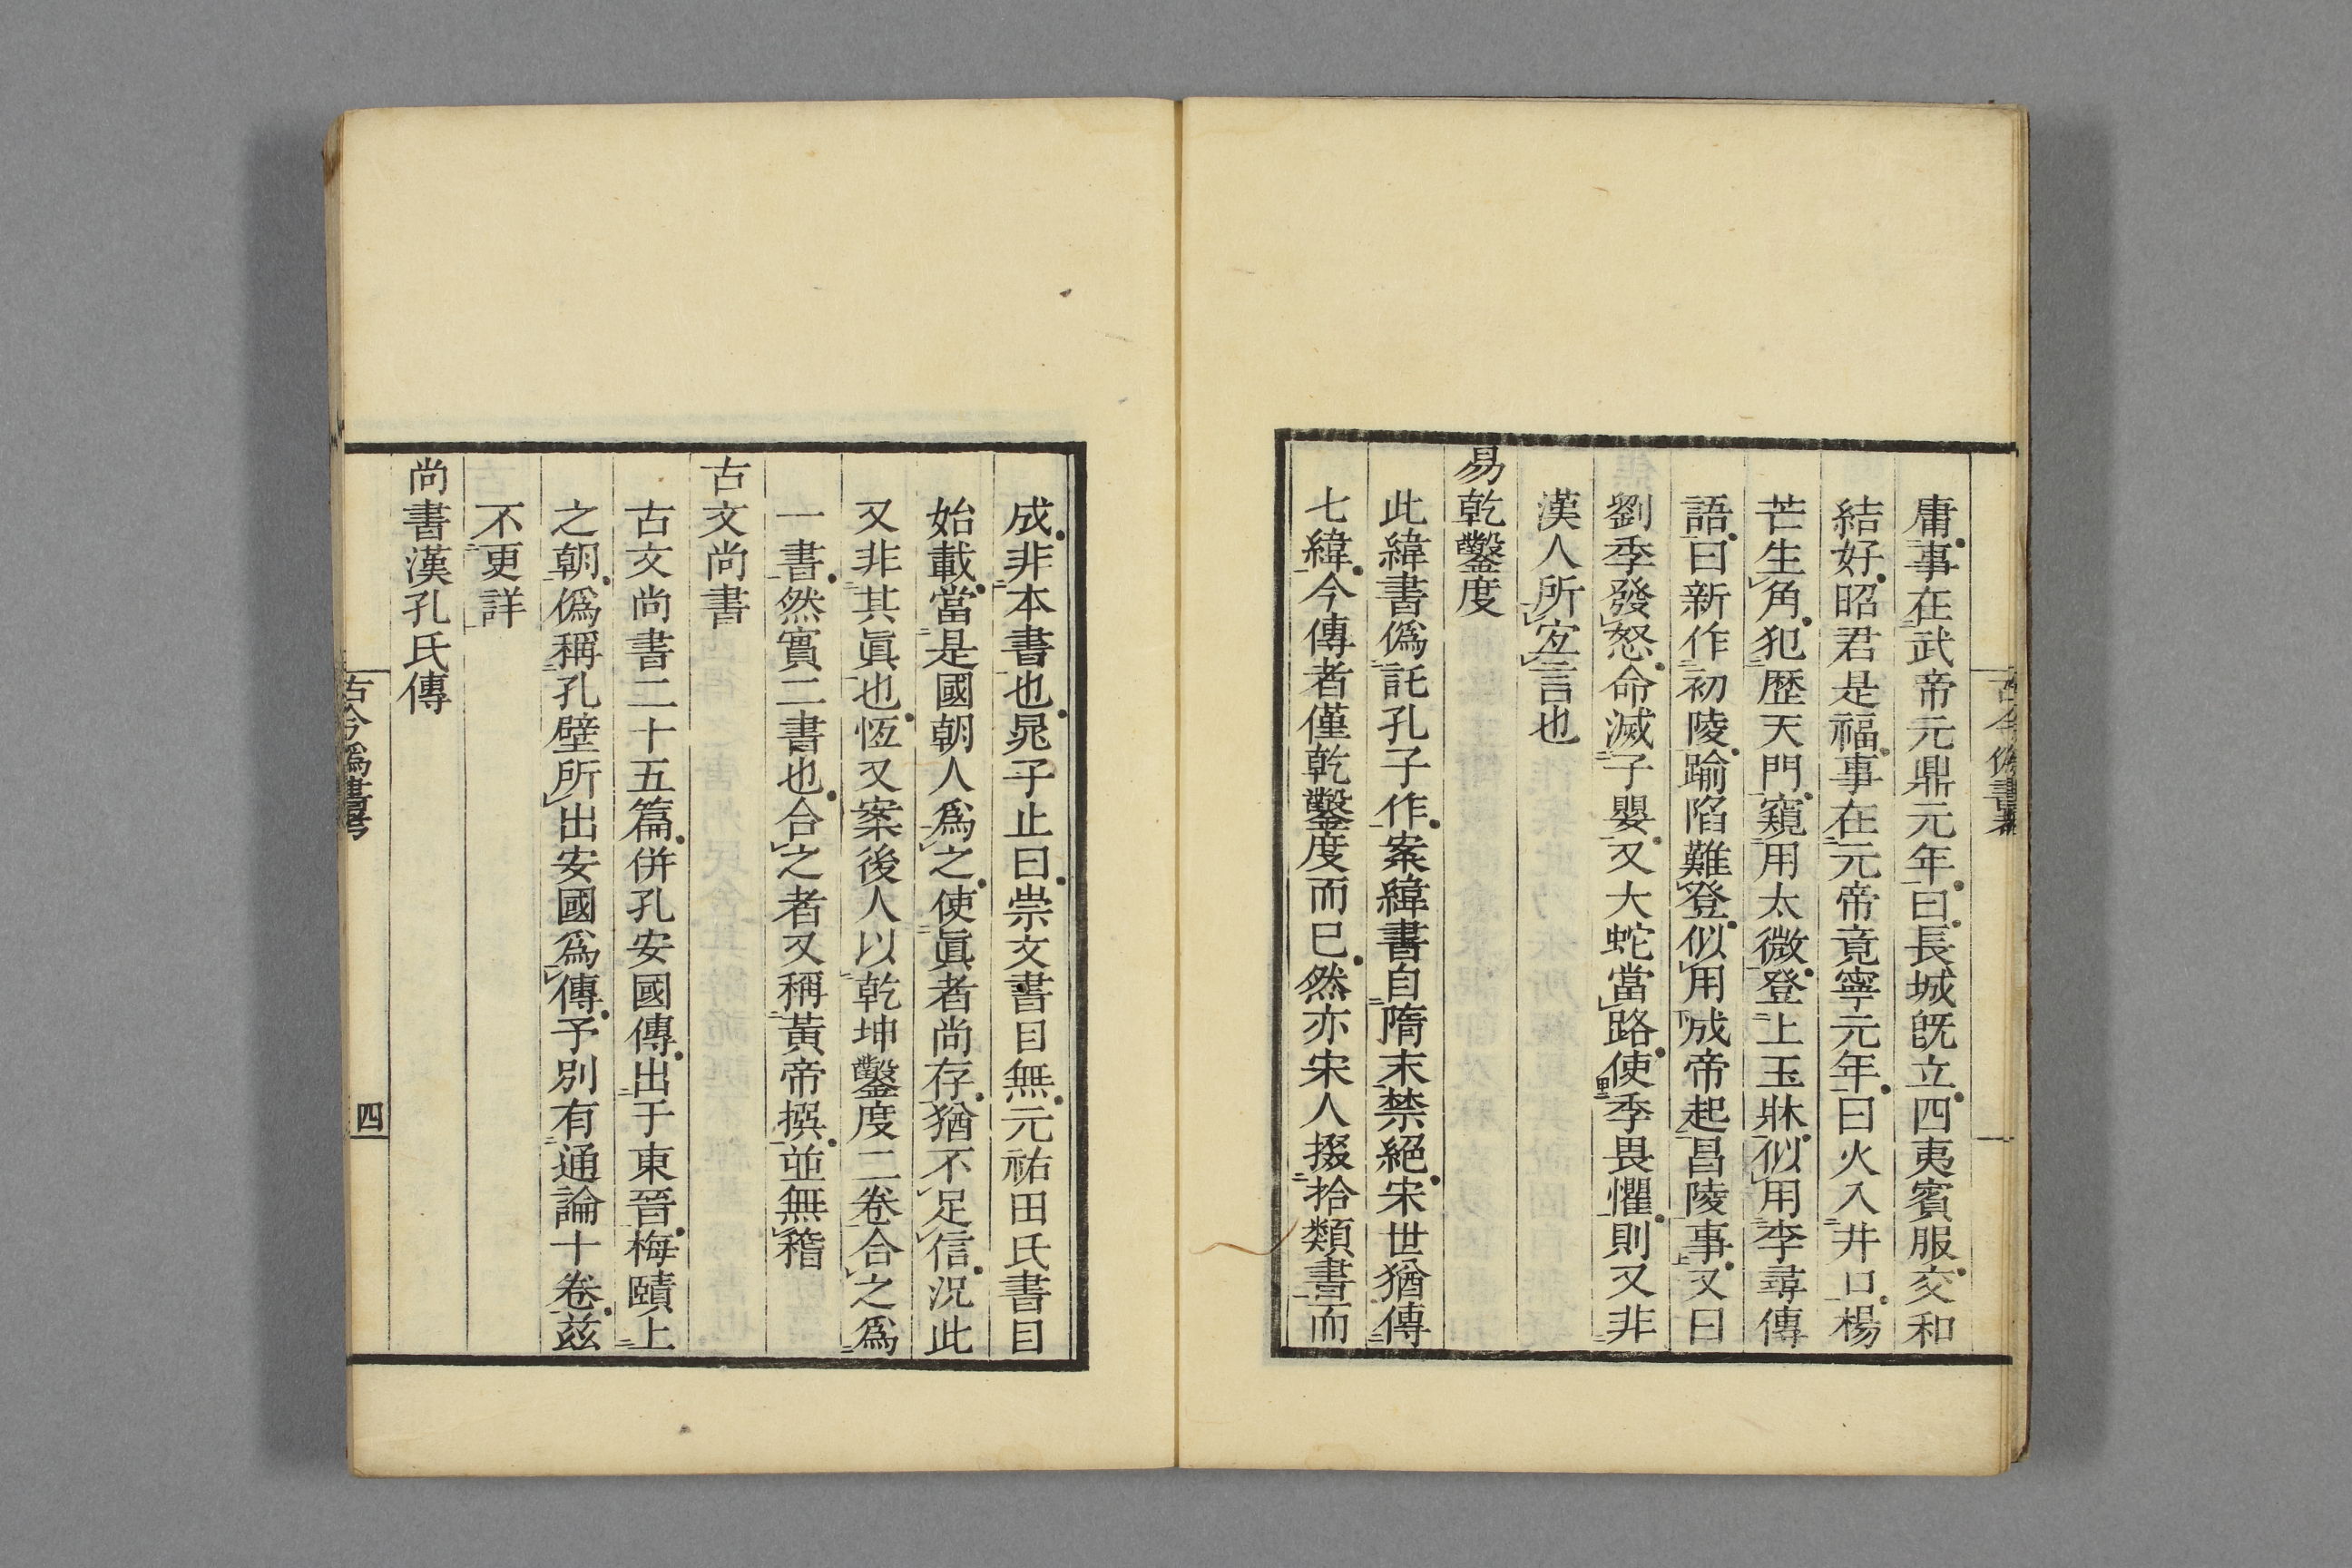 古今僞書考
庸事在武帝元鼎元年曰長城旣立四夷賓服交和
結好昭君是福事在元帝竟寧元年曰火入井口楊
芒生角犯歷天門窺用太微登上玉牀似用李尋傳
語曰新作初陵踰陷難登似用成帝起昌陵事又曰
劉季發怒命滅子嬰又大蛇當路使季畏懼則又非
漢人所宐言也
易乾鑿度
此緯書僞託孔子作案緯書自隋末禁絕宋世猶傳
七緯今傳者僅乾鑿度而已然亦宋人掇拾類書而
成非本書也晁子止曰崇文書目無元祐田氏書目
始載當是國朝人爲之使眞者尚存猶不足信況此
又非其眞也恆又案後人以乾坤鑿度二卷合之爲
一書然實二書也合之者又稱黃帝撰並無稽
古文尚書
古文尚書二十五篇併孔安國傳出于東晉梅賾上
之朝僞稱孔壁所出安國爲傳予別有通論十卷茲
不更詳
尚書漢孔氏傳
古今僞書考
四